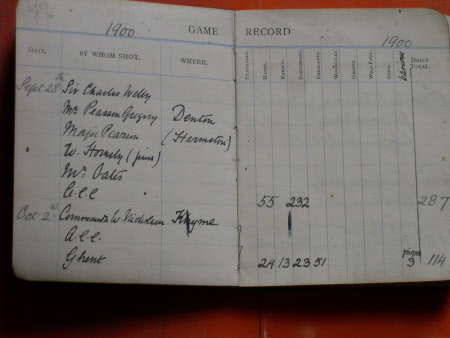 1900 GAME
RECORD 1900
DATE. BY WHOM SHOT. WHERE.
HARES. RABBITS. PARTRIDGES. PHEASANTS. WOODCOCKS. WILD FOWL. SNIPE. Various DAILY TOTAL.
Sept 28th Sir Charles Welby
Mr Pearson Gregory Denton
Major Pearson (Harmston)
W. Hornsby (junr)
Mr Oates
55 232 287
Oct 2nd Commander W. Nicholson Kyme
24 13 23 51 3 114